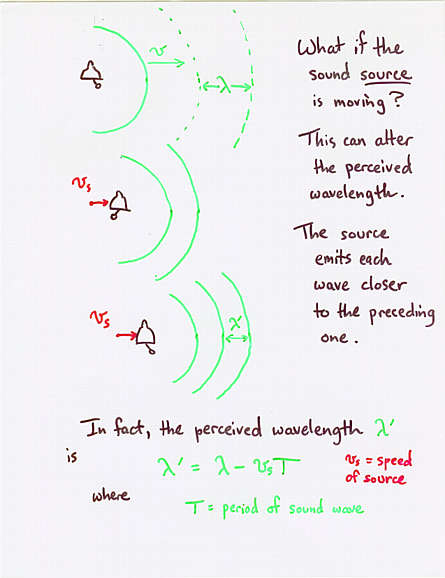 What if the
sound source
is moving?
v
λ
This can alter
the perceived
wavelength.
v_s
The source
emits each
wave closer
to the preceding
one.
v_s
λ'
In fact, the perceived wavelength λ'
is
λ' = λ - v_s T
v_s = speed
of source
where
T = period of sound wave